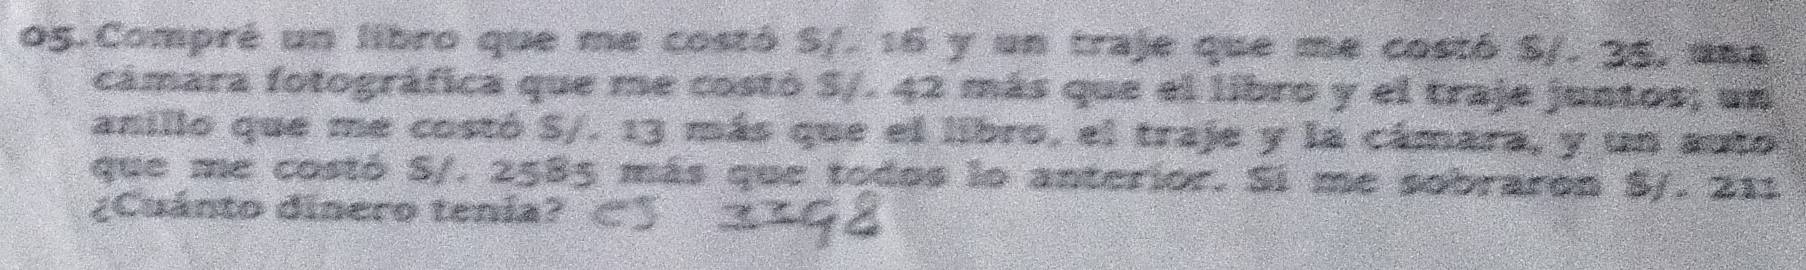 05. Compré un libro que me costó S/. 16 y un traje que me costó S/. 35, una
cámara fotográfica que me costó S/. 42 más que el libro y el traje juntos; un
anillo que me costó S/. 13 más que el libro, el traje y la cámara, y un auto
que me costó S/. 2585 más que todos lo anterior. Si me sobraron S/. 211
¿Cuánto dinero tenía? CS 3398